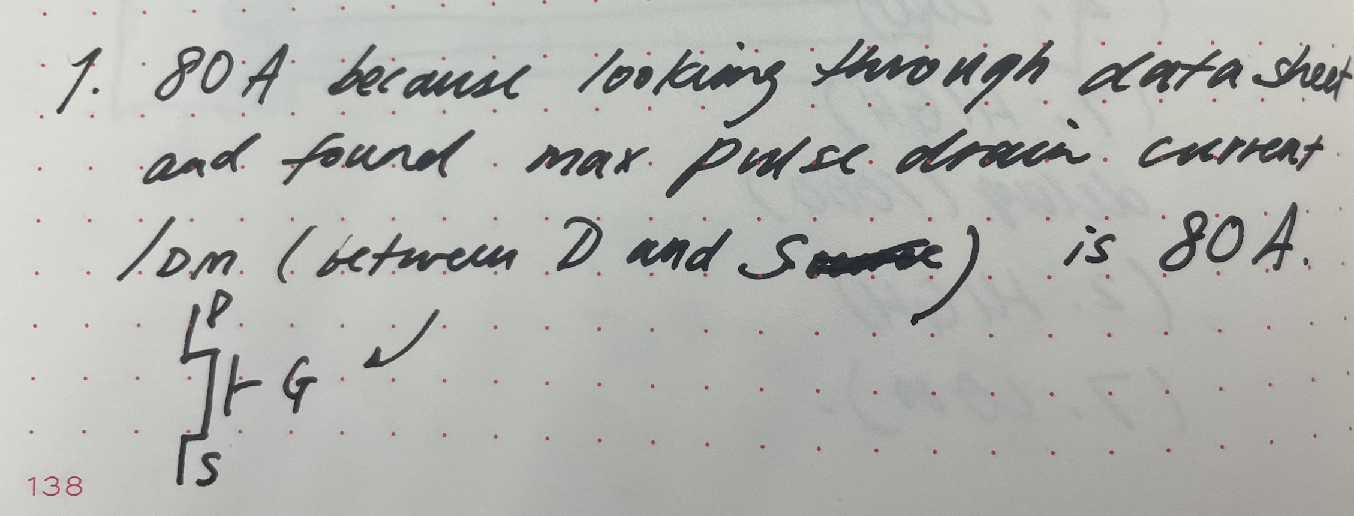 1. 80A because looking through data sheet
and found max pulse drain current
IDM (between D and S) is 80A.
D
G
S
138